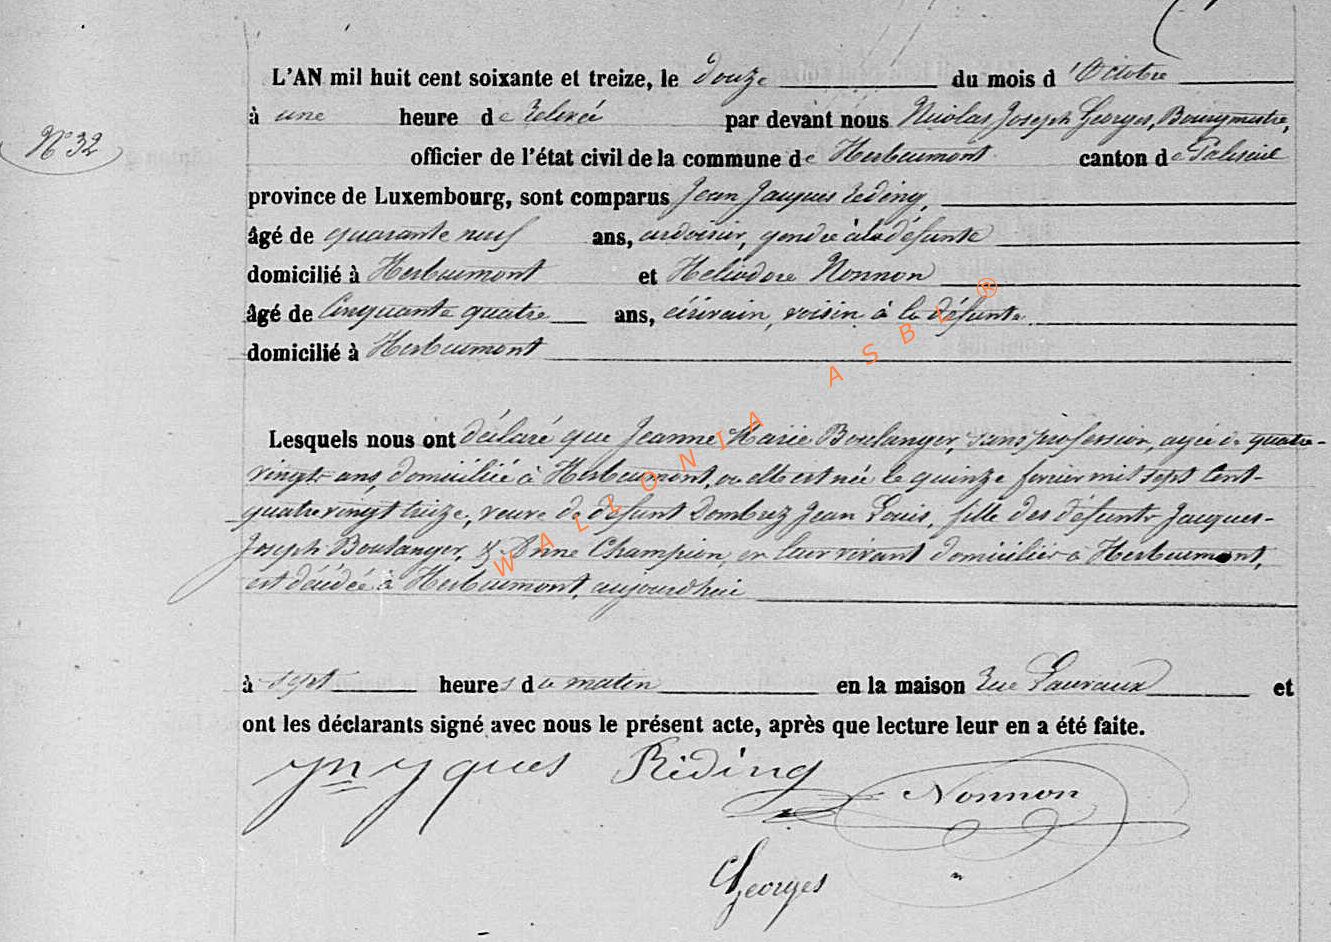 L'AN mil huit cent soixante et treize, le douze du mois d'Octobre
à une heure de relevé par devant nous Nicolas Joseph Georges, Bourgmestre,
N° 32
officier de l'état civil de la commune de Herbeumont canton de Paliseul
province de Luxembourg, sont comparus Jean Jacques Reding,
âgé de quarante neuf ans, ardoisier, gendre à la défunte
domicilié à Herbeumont et Héliodore Nonnon
âgé de Cinquante quatre ans, écrivain, voisin à la défunte
domicilié à Herbeumont
WALLONIA ASBL ®
Lesquels nous ont déclaré que Jeanne Marie Boulanger, sans profession, agée de quatre-
vingts ans, domiciliée à Herbeumont, ou elle est née le quinze février mil sept Cent-
quatre vingt treize, veuve de défunt Dombrez Jean Louis, fille des défunts Jacques-
Joseph Boulanger, & Anne Champion, en leur vivant domiciliés à Herbeumont,
est décédée à Herbeumont, aujourd'hui
à sept heures du matin en la maison Rue Lauvaux et
ont les déclarants signé avec nous le présent acte, après que lecture leur en a été faite.
Jn Jques Rèding
Nonnon
Georges